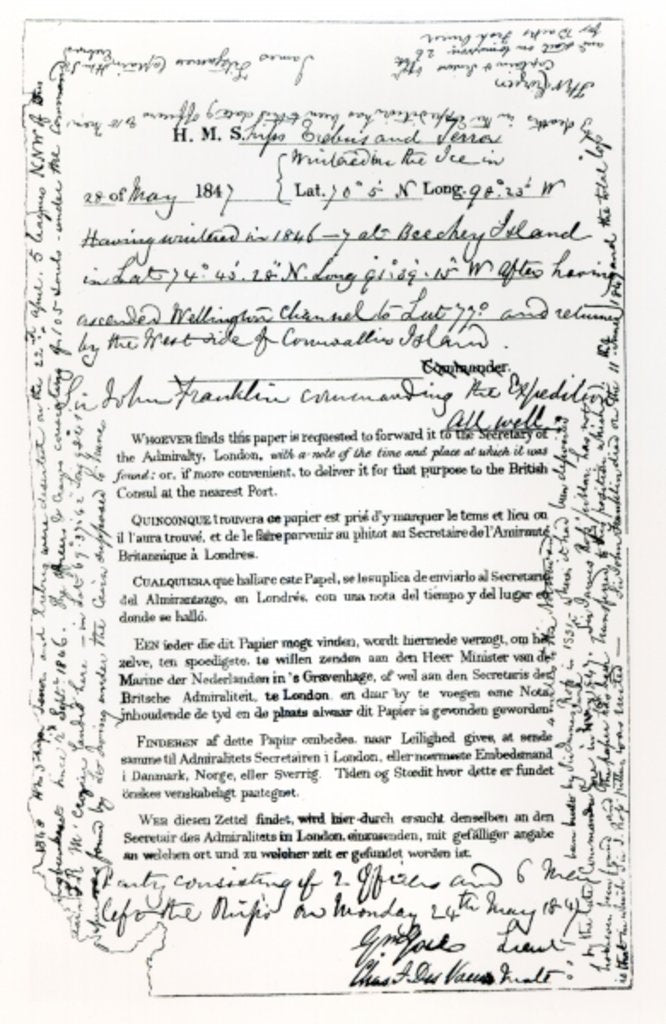 H. M. S. hips Erebus and Terror
Wintered in the Ice in
28 of May 1847 Lat. 70° 5' N Long. 98°. 23' W
Having wintered in 1846–7 at Beechey Island
in Lat 74°. 43'. 28" N. Long 91°. 39'. 15" W After having
ascended Wellington Channel to Lat 77° and returned
by the West side of Cornwallis Island.
Commander.
John Franklin commanding the Expedition
All well
WHOEVER finds this paper is requested to forward it to the Secretary of
the Admiralty, London, with a note of the time and place at which it was
found: or, if more convenient, to deliver it for that purpose to the British
Consul at the nearest Port.
QUINCONQUE trouvera ce papier est prié d'y marquer le tems et lieu ou
il l'aura trouvé, et de le faire parvenir au plutot au Secretaire de l'Amirauté
Britannique à Londres.
CUALQUIERA que hallare este Papel, se le suplica de enviarlo al Secretario
del Almirantazgo, en Londrés, con una nota del tiempo y del lugar en
donde se halló.
EEN ieder die dit Papier mogt vinden, wordt hiermede verzogt, om het
zelve, ten spoedigste, te willen zenden aan den Heer Minister van de
Marine der Nederlanden in 's Gravenhage, of wel aan den Secretaris der
Britsche Admiraliteit, te London, en daar by te voegen eene Nota,
inhoudende de tyd en de plaats alwaar dit Papier is gevonden geworden
FINDEREN af dette Papiir ombedes, naar Leilighed gives, at sende
samme til Admiralitets Secretairen i London, eller nærmeste Embedsmand
i Danmark, Norge, eller Sverrig. Tiden og Stœdit hvor dette er fundet
önskes venskabeligt paategnet.
WER diesen Zettel findet, wird hier-durch ersucht denselben an den
Secretair des Admiralitets in London einzusenden, mit gefälliger angabe
an welchen ort und zu welcher zeit er gefundet worden ist.
Party consisting of 2 Officers and 6 Men
left the Ships on Monday 24th May 1847
Gm Gore Lieut
Chas F Des Voeux Mate
1848 H M Ships Terror and Erebus were deserted on the 22nd April. 5 leagues NNW of this
having been beset since 12th Septr 1846. The Officers & Crews consisting of 105 souls under the Command
of Captain F. R. M. Crozier landed here in Lat 69°. 37'. 42" Long 98°. 41'
paper was found by Lt Irving under the Cairn supposed to have
been built by Sir James Ross in 1831 where it had been deposited
by the late Commander Gore in June 1847. Sir James Ross' pillar has not
however been found and the paper has been transferred to this position which
is that in which Sir J Ross' pillar was erected — Sir John Franklin died on the 11th June 1847 and the total loss
by deaths in the Expedition has been to this date 9 Officers & 15 men.
James Fitzjames Captain HMS
Erebus
F R M Crozier
Captain & Senior Offr
and start on tomorrow 26
for Backs Fish River